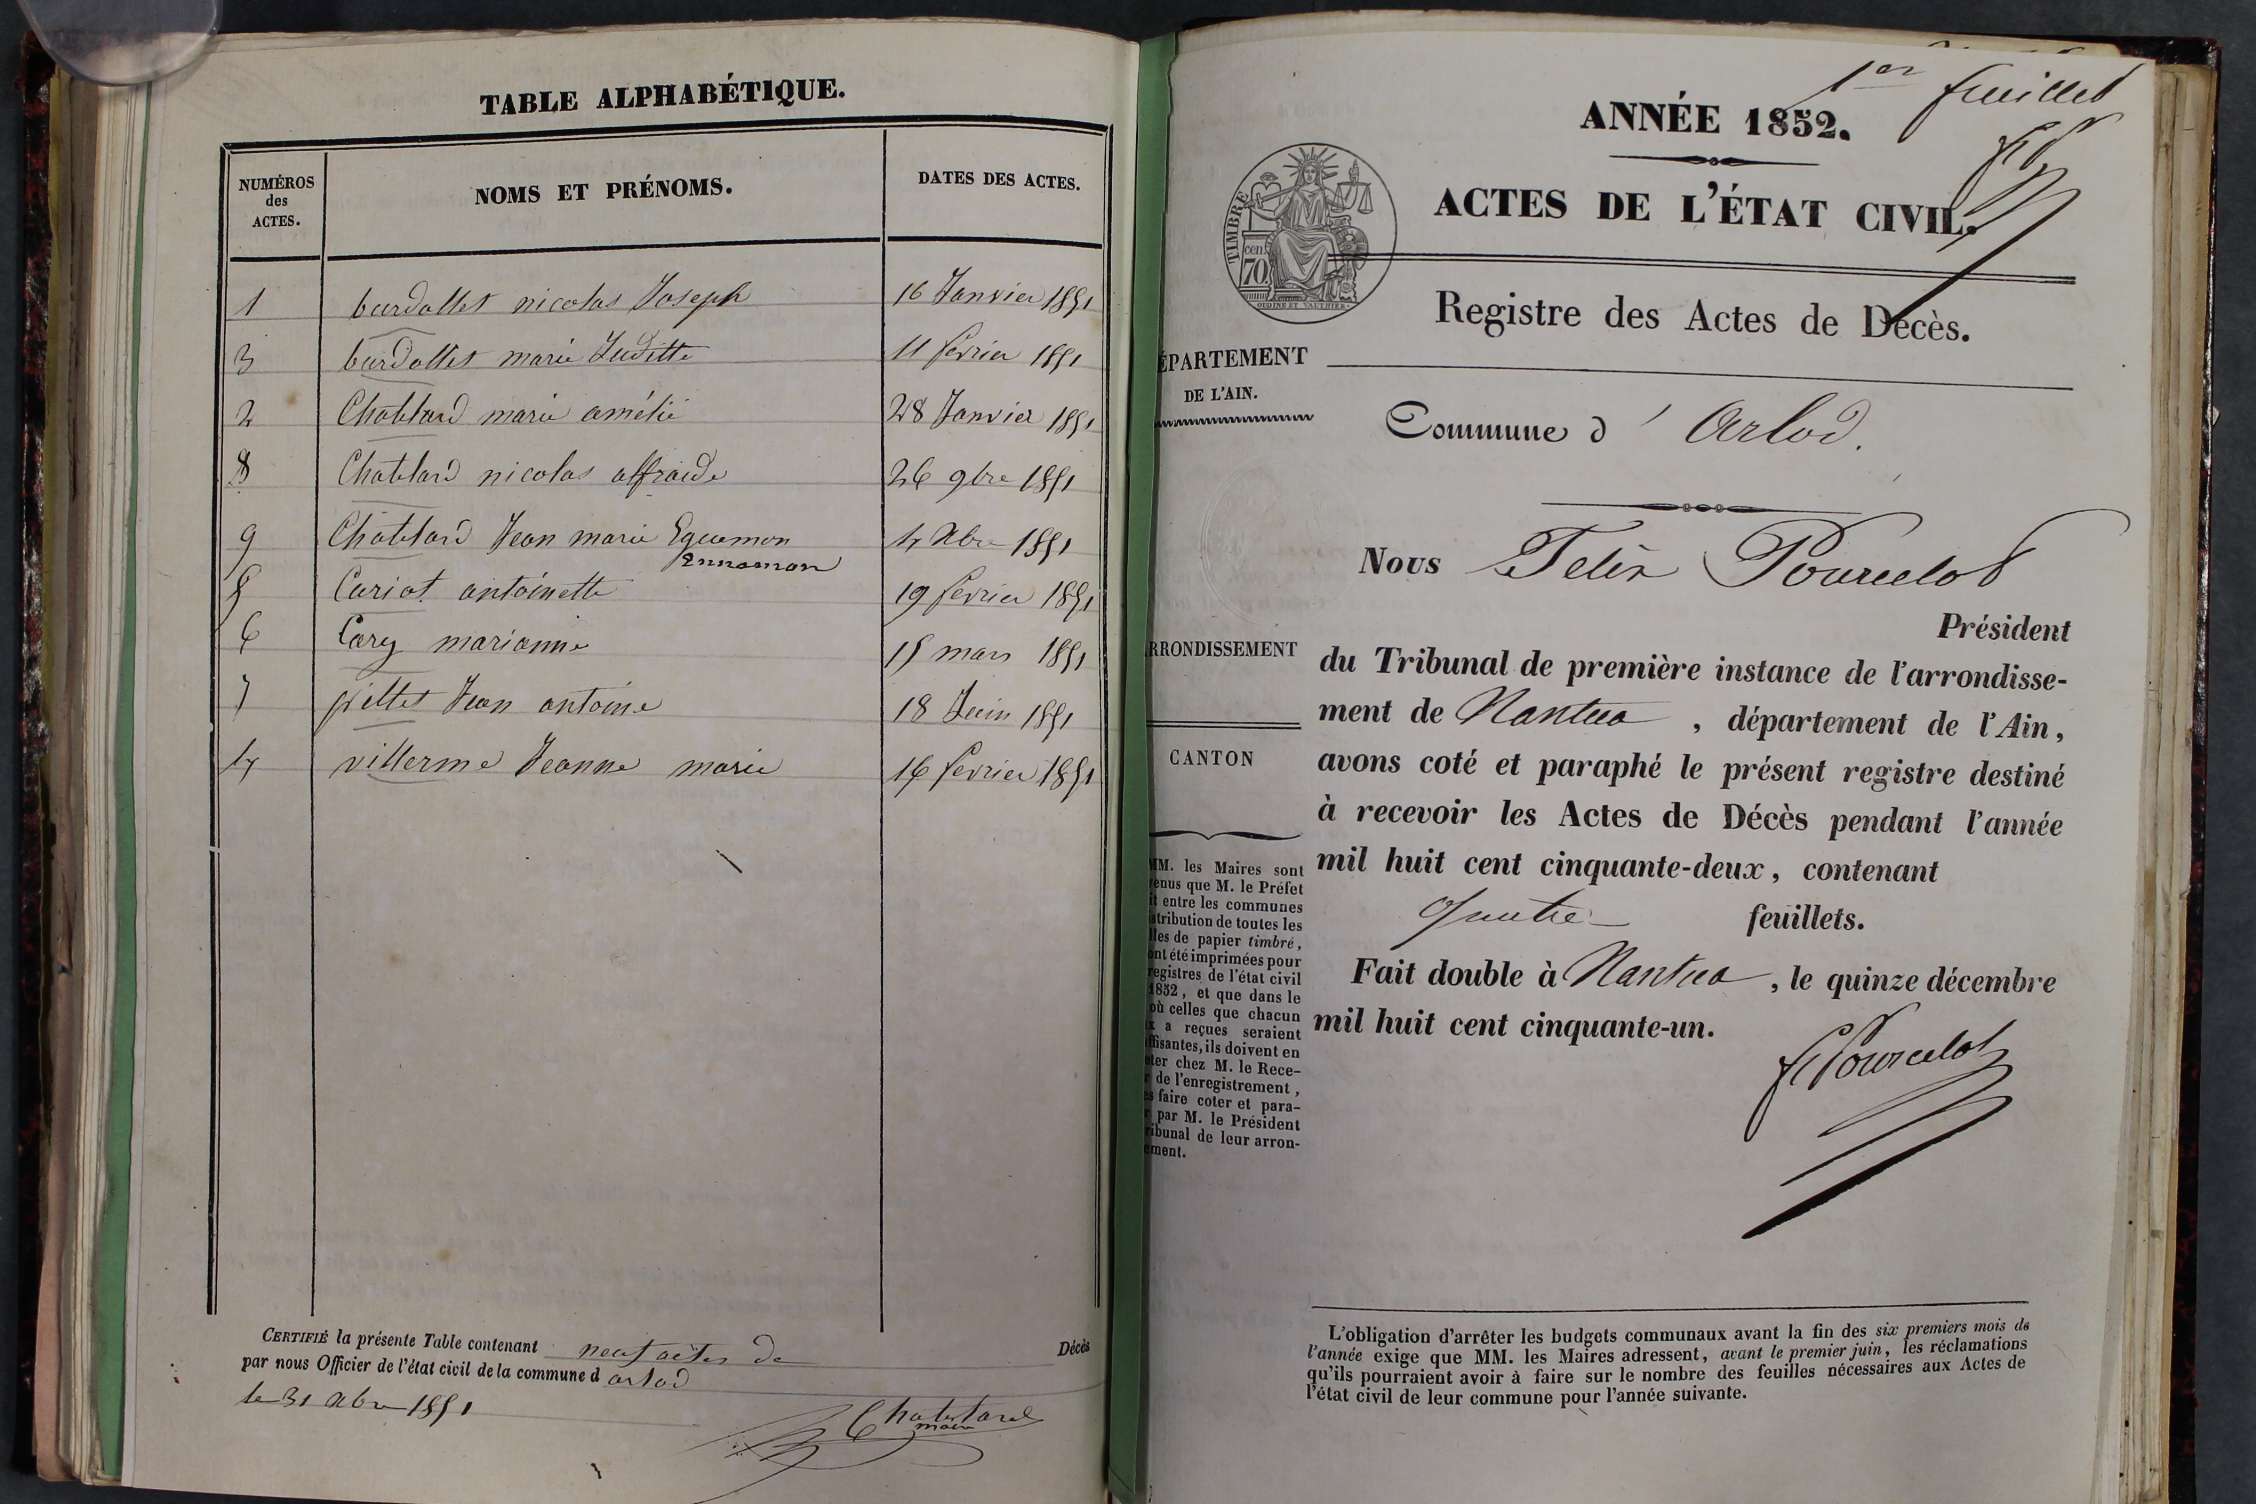 TABLE ALPHABÉTIQUE.
NUMÉROS
des
ACTES.
NOMS ET PRÉNOMS.
DATES DES ACTES.
1 burdallet nicolas Joseph 16 Janvier 1851
3 burdallet marie Juditte 11 fevrier 1851
2 Chatelard marie amélié 28 Janvier 1851
8 Chatelard nicolas 26 9bre 1851
9 Chatelard Jean marie Eguemon 4 Xbre 1851
Ennomon
5 Curiat antoinette 19 fevrier 1851
6 Cary marianne 15 mars 1851
7 pillet Jean antoine 18 Juin 1851
4 villerme Jeanne marie 16 fevrier 1851
CERTIFIÉ la présente Table contenant neuf actes de Décès
par nous Officier de l'état civil de la commune d arlod
le 31 Xbre 1851
Chatelard
maire
1er feuillet
ANNÉE 1852.
ACTES DE L'ÉTAT CIVIL.
TIMBRE
cen.
70
Registre des Actes de Décès.
ÉPARTEMENT
DE L'AIN.
Commune d' Arlod.
Nous Felix Pourcelot
Président
du Tribunal de première instance de l'arrondisse-
ment de Nantua, département de l'Ain,
avons coté et paraphé le présent registre destiné
à recevoir les Actes de Décès pendant l'année
mil huit cent cinquante-deux, contenant
quatre feuillets.
Fait double à Nantua, le quinze décembre
mil huit cent cinquante-un.
F Pourcelot
RRONDISSEMENT
CANTON
MM. les Maires sont
enus que M. le Préfet
it entre les communes
stribution de toutes les
lles de papier timbré,
ont été imprimées pour
registres de l'état civil
1852, et que dans le
où celles que chacun
x a reçues seraient
ffisantes, ils doivent en
ter chez M. le Rece-
r de l'enregistrement,
es faire coter et para-
r par M. le Président
ribunal de leur arron-
ement.
L'obligation d'arrêter les budgets communaux avant la fin des six premiers mois de
l'année exige que MM. les Maires adressent, avant le premier juin, les réclamations
qu'ils pourraient avoir à faire sur le nombre des feuilles nécessaires aux Actes de
l'état civil de leur commune pour l'année suivante.